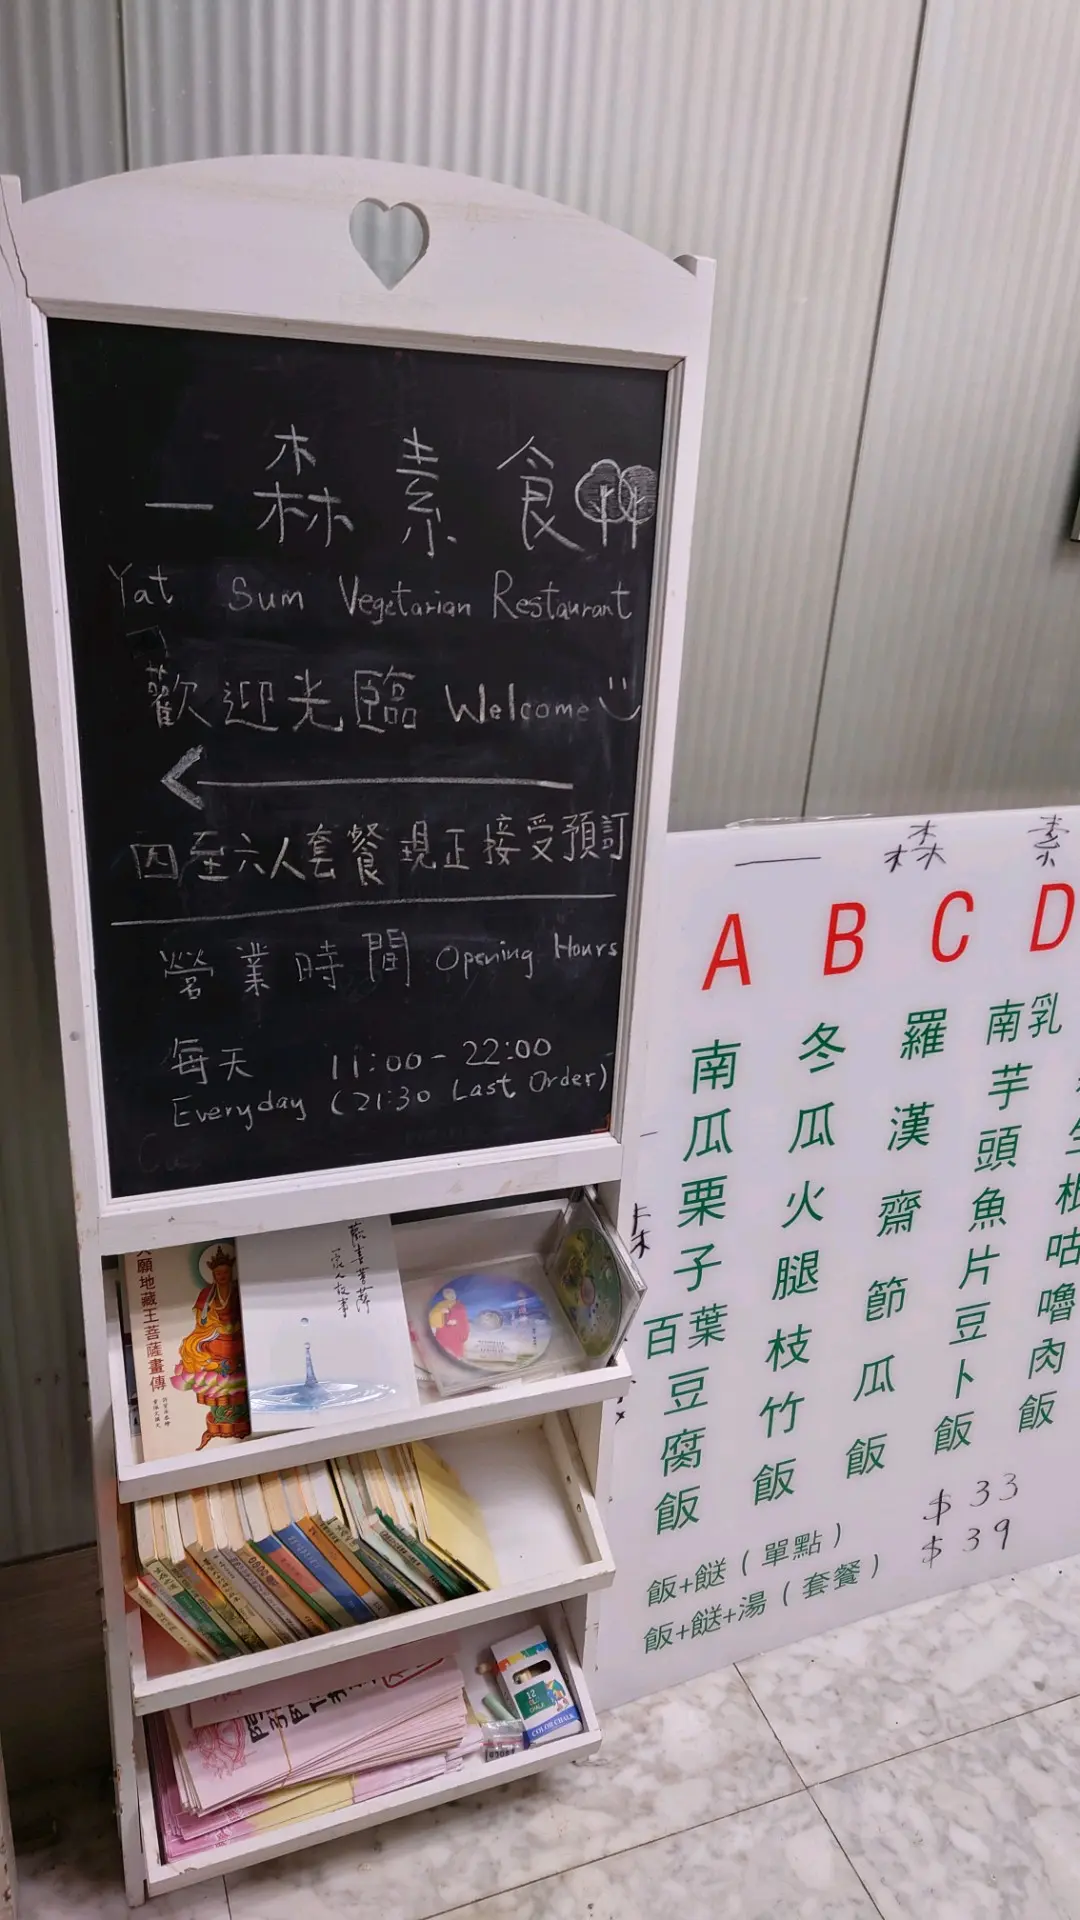 一森素食
Yat Sum Vegetarian Restaurant
歡迎光臨 Welcome
四至六人套餐現正接受預訂
營業時間 Opening Hours
每天 11:00-22:00
Everyday (21:30 Last Order)
一森素
A B C D
南瓜栗子百葉豆腐飯
冬瓜火腿枝竹飯
羅漢齋節瓜飯
南乳芋頭魚片豆卜飯
咕嚕肉飯
飯+餸（單點） $33
飯+餸+湯（套餐） $39
願地藏王菩薩畫傳
家人故事
12
COLOR CHALK